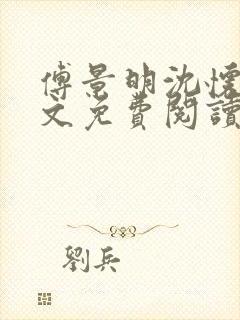 傅景明沈懷
文免費閱讀
劉兵